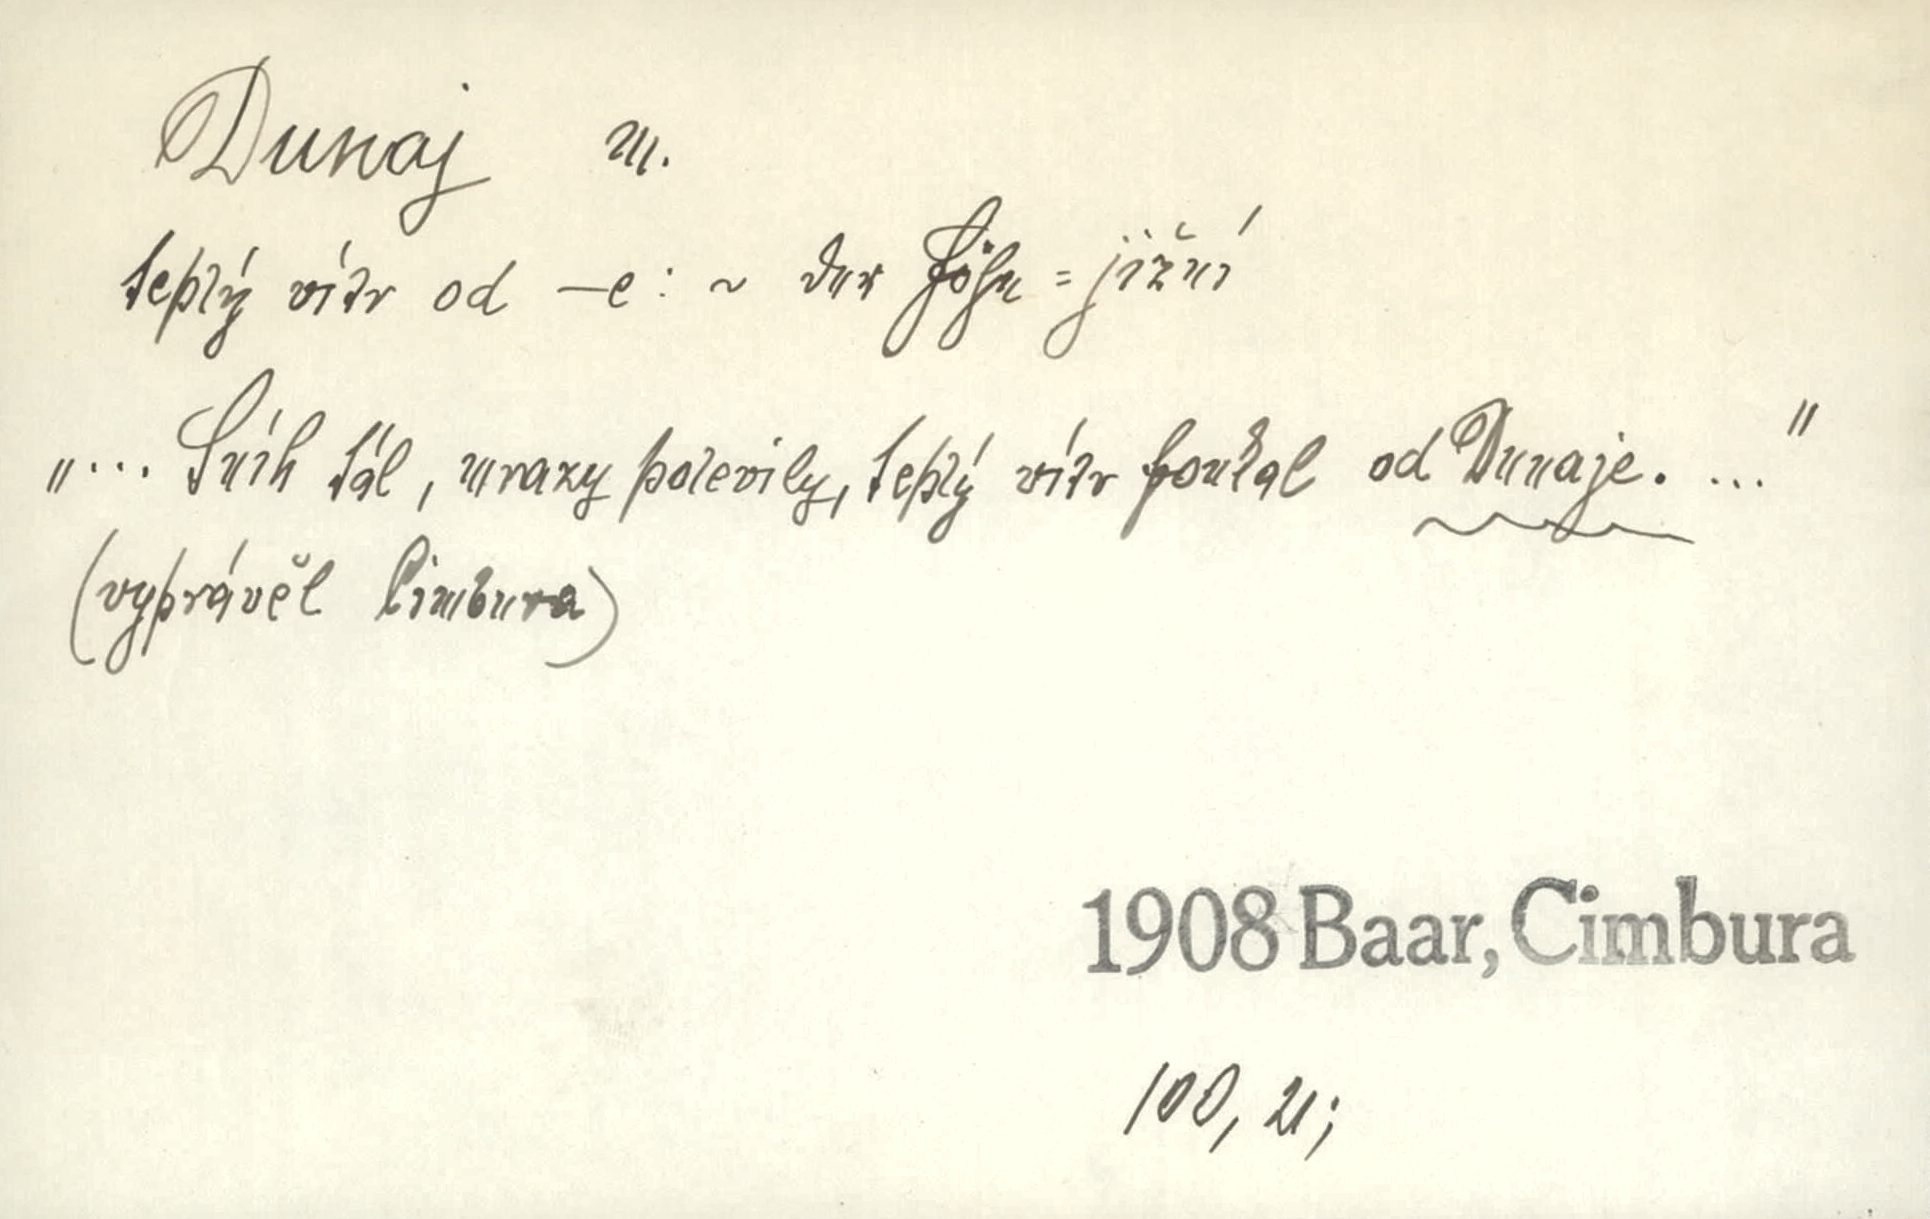 Dunaj m.
teplý vítr od —e: ~ der Föhn = jižní
„... Sníh tál, mrazy polevily, teplý vítr foukal od Dunaje. ..."
(vyprávěl Cimbura)
1908 Baar, Cimbura
100, 21;